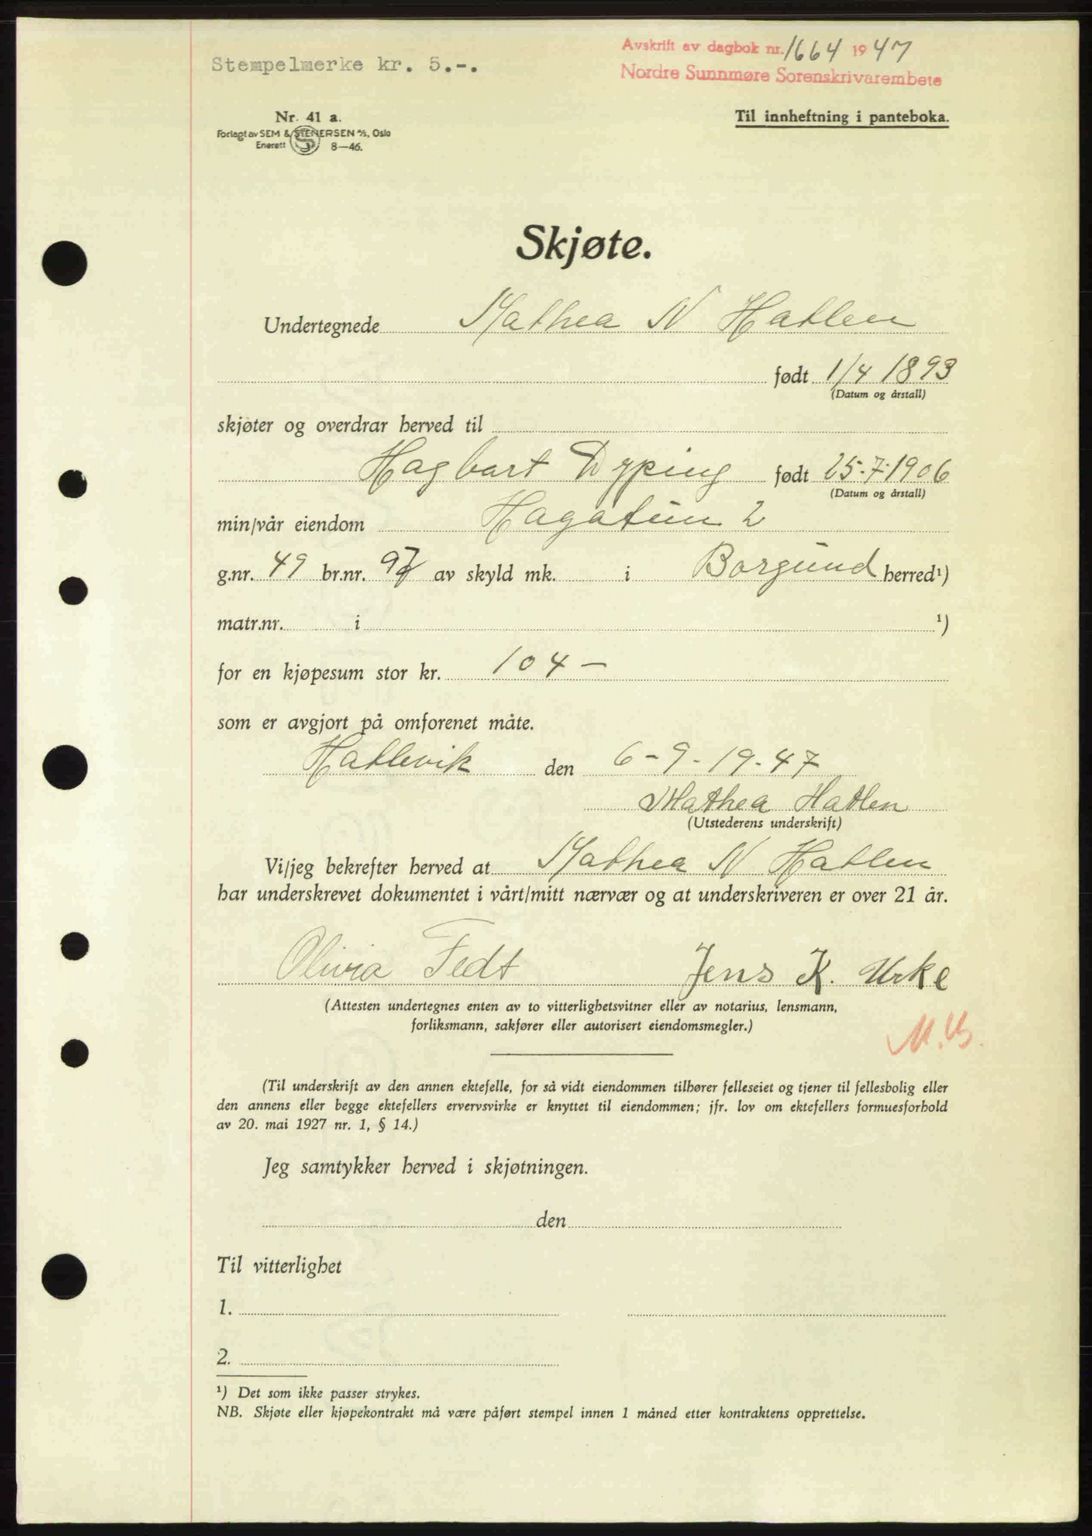 Stempelmerke kr. 5.-.
Avskrift av dagbok nr. 1664 1947
Nordre Sunnmøre Sorenskrivarembete
Nr. 41 a.
Forlagt av SEM & STENERSEN A/S, Oslo
Enerett S 8—46.
Til innheftning i panteboka.
Skjøte.
Undertegnede Mathea N Hatlen
født 1/4 1893
(Datum og årstall)
skjøter og overdrar herved til
Hagbart Dyping født 25-7-1906
(Datum og årstall)
min/vår eiendom Hagatun 2
g.nr. 49 br.nr. 97 av skyld mk. i Borgund herred¹)
matr.nr. i ¹)
for en kjøpesum stor kr. 104 —
som er avgjort på omforenet måte.
Hatlevik den 6-9-19-47
Mathea Hatlen
(Utstederens underskrift)
Vi/jeg bekrefter herved at Mathea N Hatlen
har underskrevet dokumentet i vårt/mitt nærvær og at underskriveren er over 21 år.
Olivia Fedt Jens K. Urke
(Attesten undertegnes enten av to vitterlighetsvitner eller av notarius, lensmann,
forliksmann, sakfører eller autorisert eiendomsmegler.)
(Til underskrift av den annen ektefelle, for så vidt eiendommen tilhører felleseiet og tjener til fellesbolig eller
den annens eller begge ektefellers ervervsvirke er knyttet til eiendommen; jfr. lov om ektefellers formuesforhold
av 20. mai 1927 nr. 1, § 14.)
Jeg samtykker herved i skjøtningen.
den
Til vitterlighet
1.
2.
¹) Det som ikke passer strykes.
NB. Skjøte eller kjøpekontrakt må være påført stempel innen 1 måned etter kontraktens opprettelse.